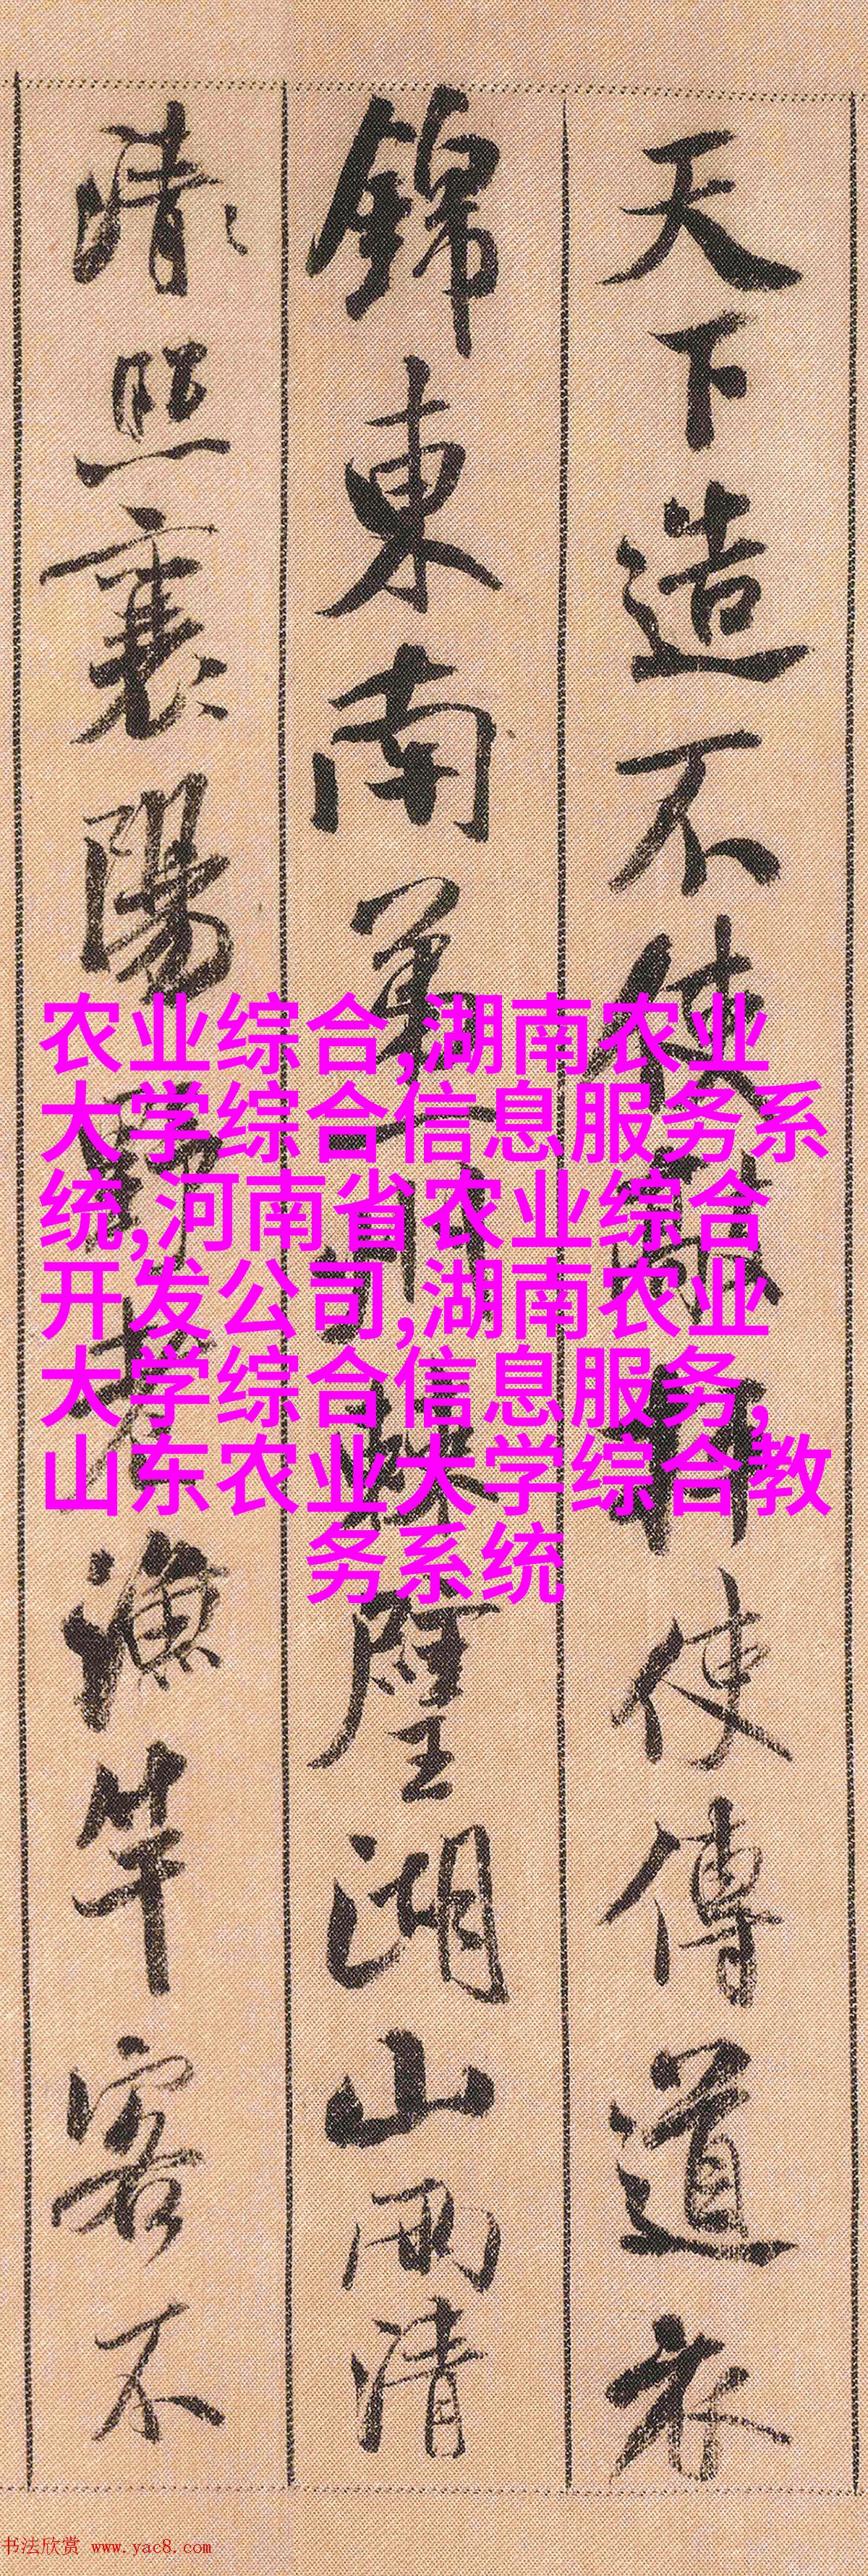 天下造不使敲枰使傳道衣
錦東南第一州棘璧湖山兩清
清照襄陽野老漁竿客不
农业综合,湖南农业
大学综合信息服务系
统,河南省农业综合
开发公司,湖南农业
大学综合信息服务,
山东农业大学综合教
务系统
书法欣赏 www.yac8.com